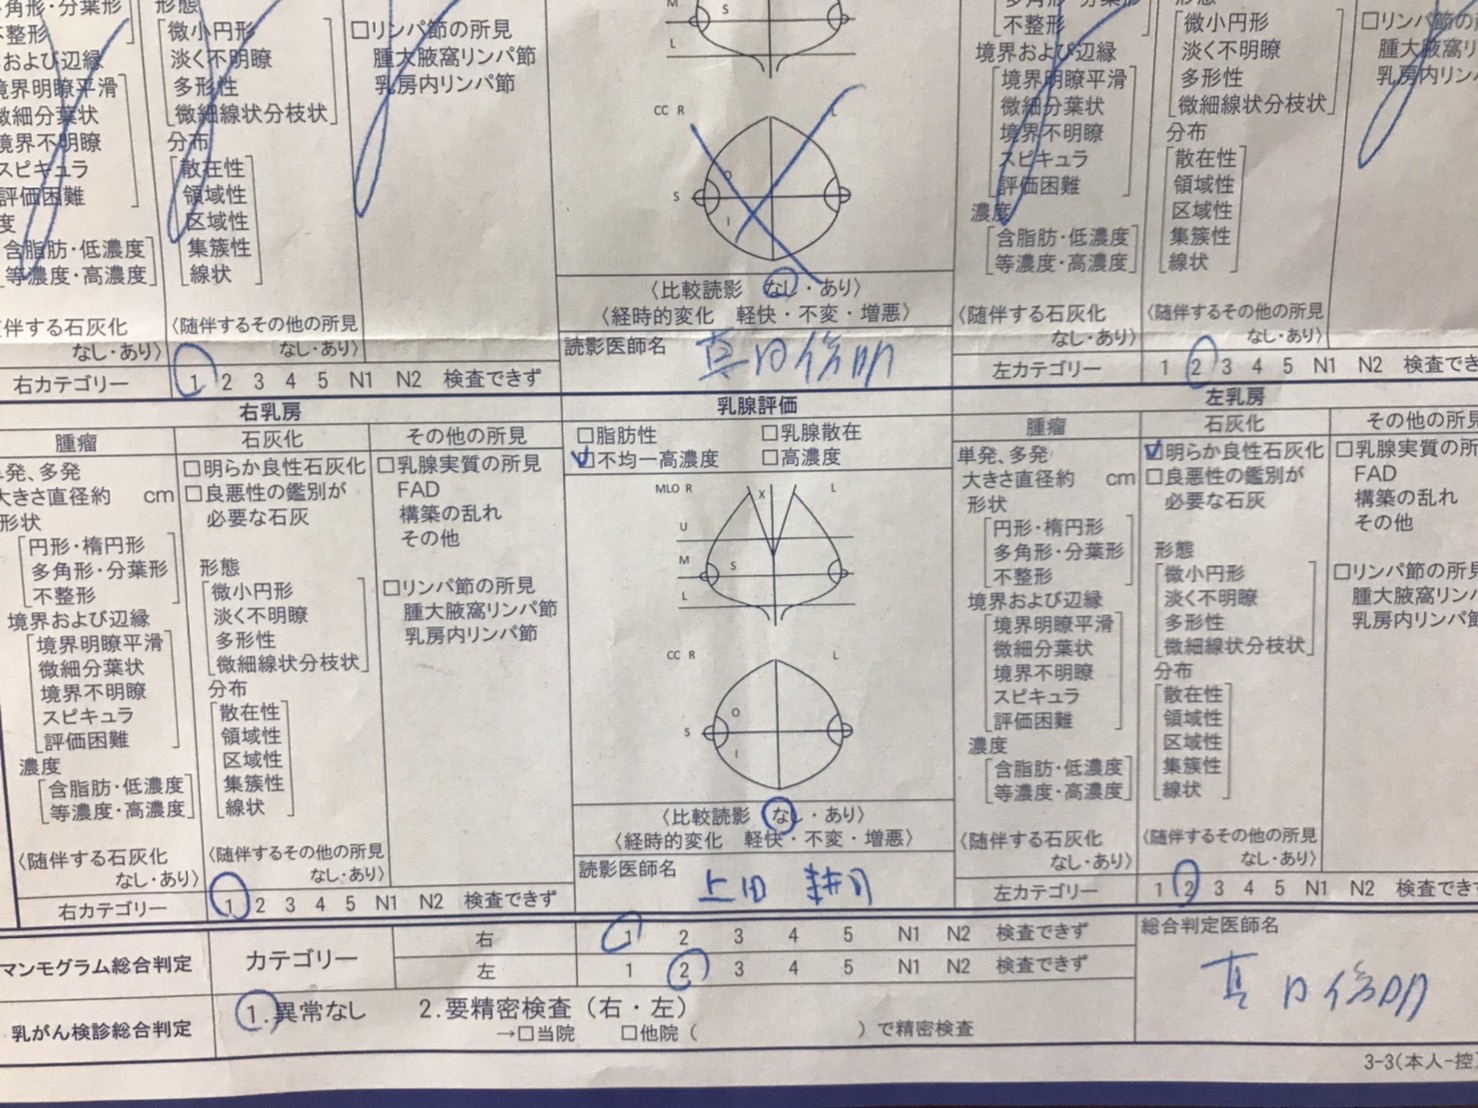 角形・分葉形
不整形
および辺縁
境界明瞭平滑
微細分葉状
境界不明瞭
スピキュラ
評価困難
度
含脂肪・低濃度
等濃度・高濃度
伴する石灰化
なし・あり〉
形態
微小円形
淡く不明瞭
多形性
微細線状分枝状
分布
散在性
領域性
区域性
集簇性
線状
〈随伴するその他の所見
なし・あり〉
□リンパ節の所見
腫大腋窩リンパ節
乳房内リンパ節
右カテゴリー 1 2 3 4 5 N1 N2 検査できず
M S
L
CC R L
O
S
I
〈比較読影 なし・あり〉
〈経時的変化 軽快・不変・増悪〉
読影医師名
不整形
境界および辺縁
境界明瞭平滑
微細分葉状
境界不明瞭
スピキュラ
評価困難
濃度
含脂肪・低濃度
等濃度・高濃度
〈随伴する石灰化
なし・あり〉
形態
微小円形
淡く不明瞭
多形性
微細線状分枝状
分布
散在性
領域性
区域性
集簇性
線状
〈随伴するその他の所見
なし・あり〉
□リンパ節の
腫大腋窩リ
乳房内リン
左カテゴリー 1 2 3 4 5 N1 N2 検査でき
右乳房
腫瘤
単発、多発
大きさ直径約 cm
形状
円形・楕円形
多角形・分葉形
不整形
境界および辺縁
境界明瞭平滑
微細分葉状
境界不明瞭
スピキュラ
評価困難
濃度
含脂肪・低濃度
等濃度・高濃度
〈随伴する石灰化
なし・あり〉
石灰化
□明らか良性石灰化
□良悪性の鑑別が
必要な石灰
形態
微小円形
淡く不明瞭
多形性
微細線状分枝状
分布
散在性
領域性
区域性
集簇性
線状
〈随伴するその他の所見
なし・あり〉
その他の所見
□乳腺実質の所見
FAD
構築の乱れ
その他
□リンパ節の所見
腫大腋窩リンパ節
乳房内リンパ節
右カテゴリー 1 2 3 4 5 N1 N2 検査できず
乳腺評価
□脂肪性 □乳腺散在
☑不均一高濃度 □高濃度
MLO R X L
U
M S
L
CC R L
O
S
I
〈比較読影 なし・あり〉
〈経時的変化 軽快・不変・増悪〉
読影医師名
左乳房
腫瘤
単発、多発
大きさ直径約 cm
形状
円形・楕円形
多角形・分葉形
不整形
境界および辺縁
境界明瞭平滑
微細分葉状
境界不明瞭
スピキュラ
評価困難
濃度
含脂肪・低濃度
等濃度・高濃度
〈随伴する石灰化
なし・あり〉
石灰化
☑明らか良性石灰化
□良悪性の鑑別が
必要な石灰
形態
微小円形
淡く不明瞭
多形性
微細線状分枝状
分布
散在性
領域性
区域性
集簇性
線状
〈随伴するその他の所見
なし・あり〉
その他の所見
□乳腺実質の所
FAD
構築の乱れ
その他
□リンパ節の所見
腫大腋窩リンパ
乳房内リンパ節
左カテゴリー 1 2 3 4 5 N1 N2 検査でき
マンモグラム総合判定 カテゴリー
右 1 2 3 4 5 N1 N2 検査できず
左 1 2 3 4 5 N1 N2 検査できず
総合判定医師名
乳がん検診総合判定
1.異常なし 2.要精密検査（右・左）
→□当院 □他院（ ）で精密検査
3-3(本人-控)